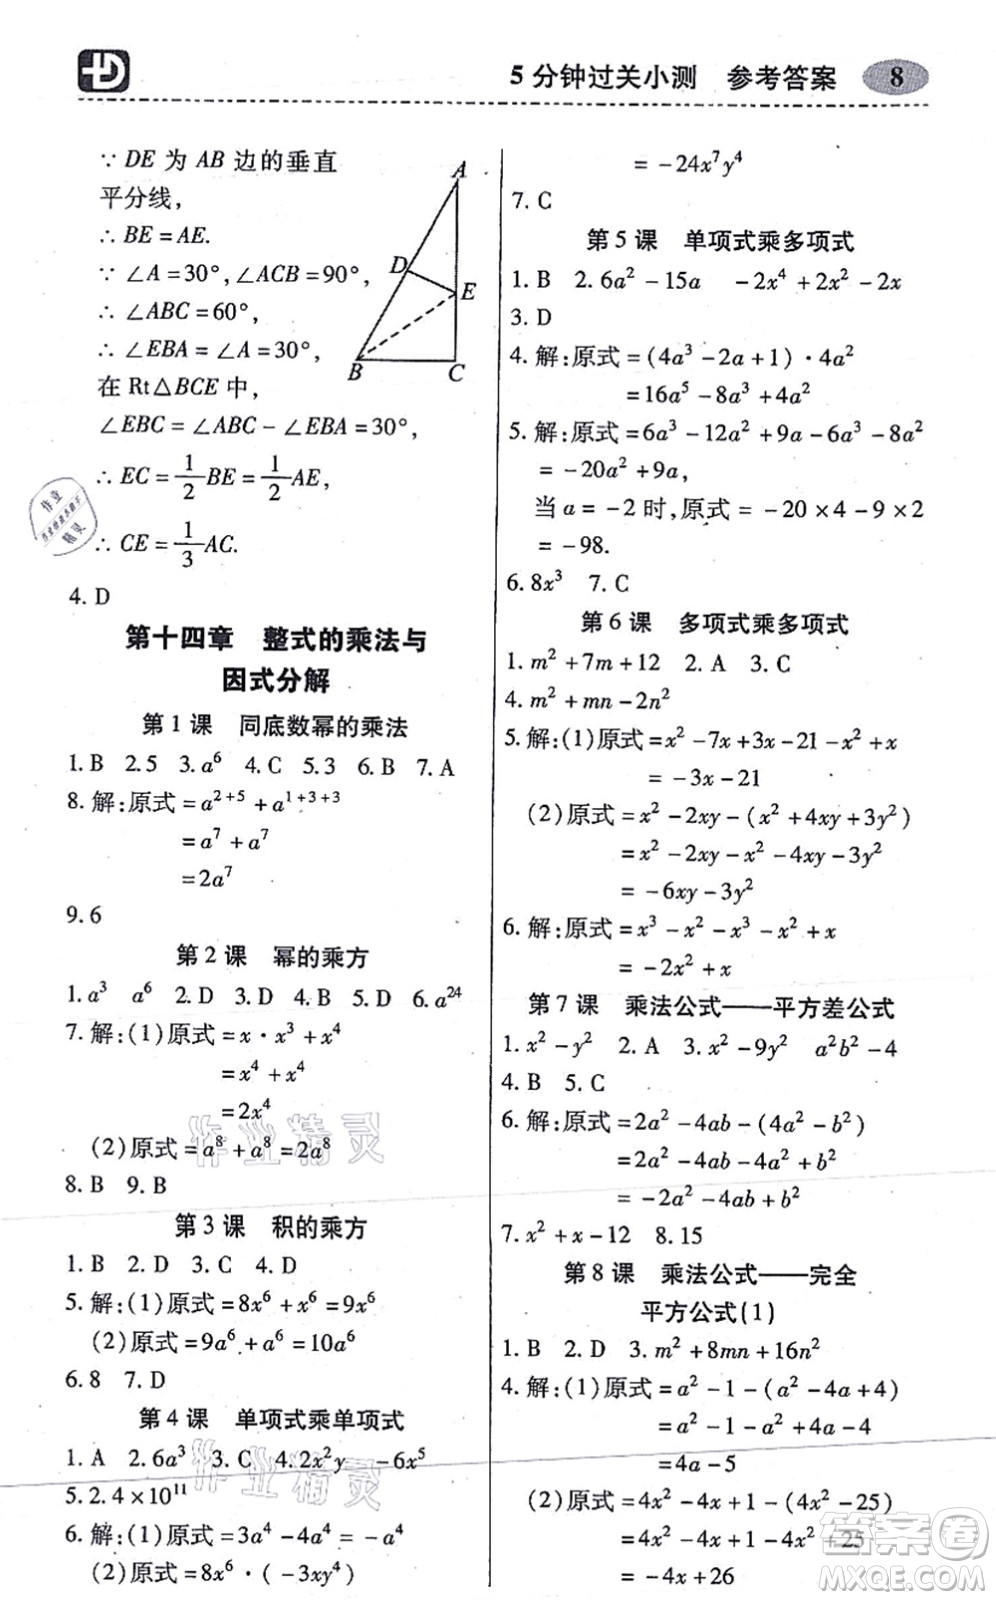 5分钟过关小测 参考答案 8
∵ DE 为 AB 边的垂直
平分线,
∴ BE = AE.
∵ ∠A = 30°, ∠ACB = 90°,
∴ ∠ABC = 60°,
∴ ∠EBA = ∠A = 30°,
在 Rt△BCE 中,
∠EBC = ∠ABC - ∠EBA = 30°,
∴ EC = 1/2 BE = 1/2 AE,
∴ CE = 1/3 AC.
A
D
E
B
C
4. D
第十四章 整式的乘法与
因式分解
第1课 同底数幂的乘法
1. B 2. 5 3. a⁶ 4. C 5. 3 6. B 7. A
8. 解:原式 = a²⁺⁵ + a¹⁺³⁺³
= a⁷ + a⁷
= 2a⁷
9. 6
第2课 幂的乘方
1. a³ a⁶ 2. D 3. D 4. B 5. D 6. a²⁴
7. 解:(1)原式 = x · x³ + x⁴
= x⁴ + x⁴
= 2x⁴
(2)原式 = a⁸ + a⁸ = 2a⁸
8. B 9. B
第3课 积的乘方
1. B 2. D 3. C 4. D
5. 解:(1)原式 = 8x⁶ + x⁶ = 9x⁶
(2)原式 = 9a⁶ + a⁶ = 10a⁶
6. 8 7. D
第4课 单项式乘单项式
1. A 2. 6a³ 3. C 4. 2x²y -6x⁵
5. 2.4 × 10¹¹
6. 解:(1)原式 = 3a⁴ - 4a⁴ = -a⁴
(2)原式 = 8x⁶ · (-3xy⁴)
= -24x⁷y⁴
7. C
第5课 单项式乘多项式
1. B 2. 6a² - 15a -2x⁴ + 2x² - 2x
3. D
4. 解:原式 = (4a³ - 2a + 1) · 4a²
= 16a⁵ - 8a³ + 4a²
5. 解:原式 = 6a³ - 12a² + 9a - 6a³ - 8a²
= -20a² + 9a,
当 a = -2 时,原式 = -20 × 4 - 9 × 2
= -98.
6. 8x³ 7. C
第6课 多项式乘多项式
1. m² + 7m + 12 2. A 3. C
4. m² + mn - 2n²
5. 解:(1)原式 = x² - 7x + 3x - 21 - x² + x
= -3x - 21
(2)原式 = x² - 2xy - (x² + 4xy + 3y²)
= x² - 2xy - x² - 4xy - 3y²
= -6xy - 3y²
6. 解:原式 = x³ - x² - x³ - x² + x
= -2x² + x
第7课 乘法公式——平方差公式
1. x² - y² 2. A 3. x² - 9y² a²b² - 4
4. B 5. C
6. 解:原式 = 2a² - 4ab - (4a² - b²)
= 2a² - 4ab - 4a² + b²
= -2a² - 4ab + b²
7. x² + x - 12 8. 15
第8课 乘法公式——完全
平方公式(1)
1. B 2. D 3. m² + 8mn + 16n²
4. 解:(1)原式 = a² - 1 - (a² - 4a + 4)
= a² - 1 - a² + 4a - 4
= 4a - 5
(2)原式 = 4x² - 4x + 1 - (4x² - 25)
= 4x² - 4x + 1 - 4x² + 25
= -4x + 26
作业精灵
作业精灵
答案圈
MXQE.COM